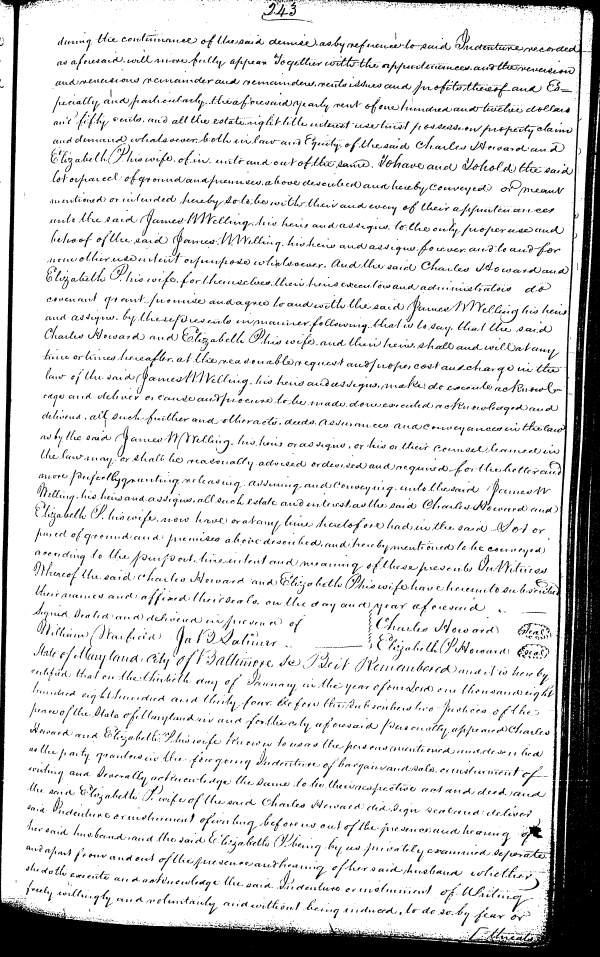 243
during the continuance of the said demise, as by reference to said Indenture recorded
as aforesaid will more fully appear Together with the appurtenances and the reversion
and reversions remainder and remainders, rents issues and profits thereof and Es=
pecially and particularly, the aforesaid yearly rent of one hundred and twelve dollars
and fifty cents, and all the estate, right title interest use trust possession property claim
and demand whatsoever, both in law and Equity of the said Charles Howard and
Elizabeth P his wife of, in, unto and out of the same. To have and To hold the said
lot or parcel of ground and premises, above described and hereby conveyed or meant
mentioned or intended hereby so to be with their and every of their appurtenances
unto the said James W Welling, his heirs and assigns, to the only proper use and
behoof of the said James W Welling, his heirs and assigns, forever, and to and for
none other use intent or purpose whatsoever. And the said Charles Howard and
Elizabeth P. his wife, for themselves, their heirs executors and administrators do
covenant grant, promise and agree to and with the said James W Welling his heirs
and assigns, by these presents in manner following, that is to say, that the said
Charles Howard and Elizabeth P his wife, and their heirs, shall and will at any
time or times hereafter, at the reasonable request and proper cost and charge in the
law of the said James W Welling, his heirs and assigns, make do execute acknowl-
edge and deliver or cause and procure to be made done executed acknowledged and
delivered, all such further and other acts, deeds, assurances and conveyances in the law
as by the said James W Welling, his heirs or assigns, or his or their counsel learned in
the law may, or shall be reasonably advised or devised and required for the better and
more perfectly granting releasing assuring and conveying unto the said James W
Welling, his heirs and assigns, all such estate and interest, as the said Charles Howard and
Elizabeth P. his wife, now have or at any time heretofore had, in the said Lot or
parcel of ground and premises above described, and hereby mentioned to be conveyed
according to the purport, true intent and meaning of these presents In Witness
Whereof the said Charles Howard and Elizabeth P his wife have hereunto subscribed
their names and affixed their seals, on the day and year aforesaid
Signed Sealed and delivered in presence of
Charles Howard (Seal)
William Warfield Ja B Latimer
Elizabeth P. Howard (Seal)
State of Maryland, City of Baltimore, Sc Be it Remembered and it is hereby
certified that on the thirtieth day of January in the year of our Lord one thousand eight
hundred eight hundred and thirty four, Before the subscribers two Justices of the
peace of the State of Maryland in and for the city aforesaid Personally appeared Charles
Howard and Elizabeth P his wife known to us as the persons mentioned and described
as the party grantors in the foregoing Indenture of bargain and sale or instrument of
writing and Severally acknowledge the same to be their respective act and deed, and
the said Elizabeth P. wife of the said Charles Howard did sign seal and deliver
said Indenture or instrument of writing before us out of the presence and hearing of
her said husband, and the said Elizabeth P. being by us privately examined separate
and apart from and out of the presence and hearing of her said husband whether
she doth execute and acknowledge the said Indenture or instrument of Writing
freely willingly and voluntarily, and without being induced, to do so, by fear or